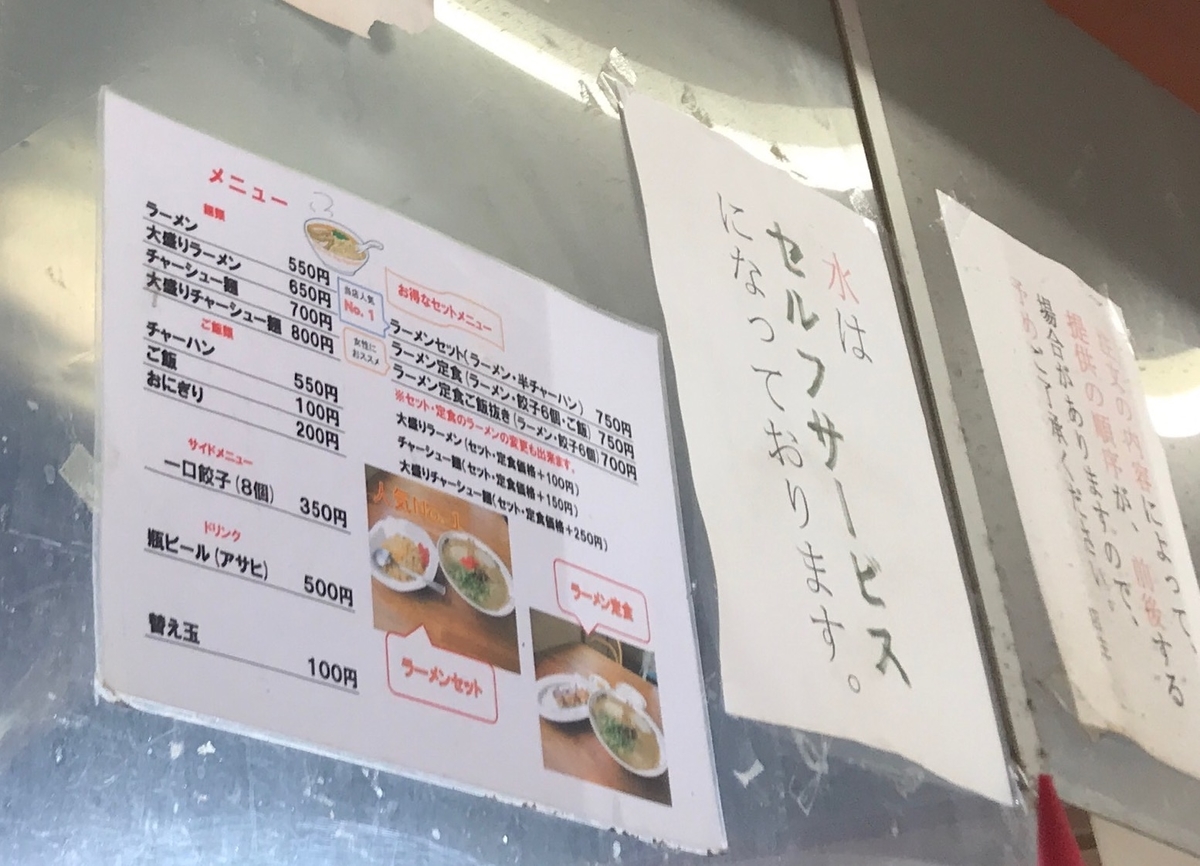 メニュー
麺類
ラーメン 550円
大盛りラーメン 650円
チャーシュー麺 700円
大盛りチャーシュー麺 800円
ご飯類
チャーハン 550円
ご飯 100円
おにぎり 200円
サイドメニュー
一口餃子(8個) 350円
ドリンク
瓶ビール(アサヒ) 500円
替え玉 100円
お得なセットメニュー
当店人気
No.1
ラーメンセット(ラーメン・半チャーハン) 750円
女性に
おススメ
ラーメン定食(ラーメン・餃子6個・ご飯) 750円
ラーメン定食ご飯抜き(ラーメン・餃子6個) 700円
※セット・定食のラーメンの変更も出来ます。
大盛りラーメン(セット・定食価格+100円)
チャーシュー麺(セット・定食価格+150円)
大盛りチャーシュー麺(セット・定食価格+250円)
人気No.1
ラーメンセット
ラーメン定食
水は
セルフサービス
になっております。
注文の内容によって、
提供の順序が、前後する
場合がありますので、
予めご了承ください。
店主